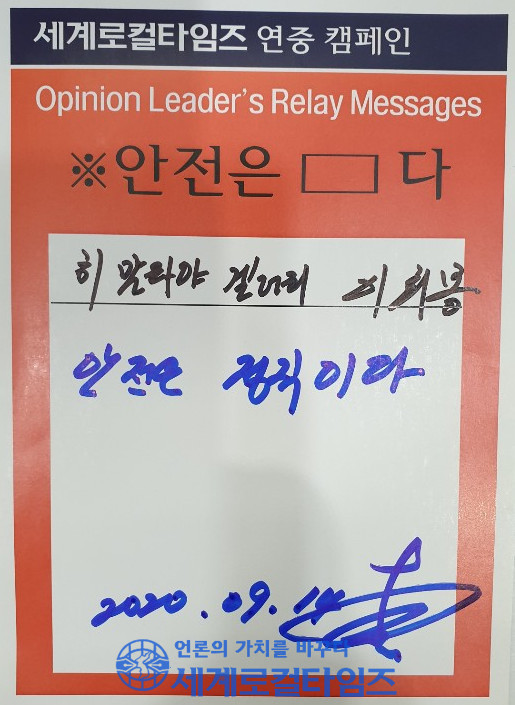 세계로컬타임즈 연중 캠페인
Opinion Leader's Relay Messages
※안전은 □ 다
히말라야 갤러리 이희봉
안전은 정직이다
2020.09.14
언론의 가치를 바꾸다
세계로컬타임즈